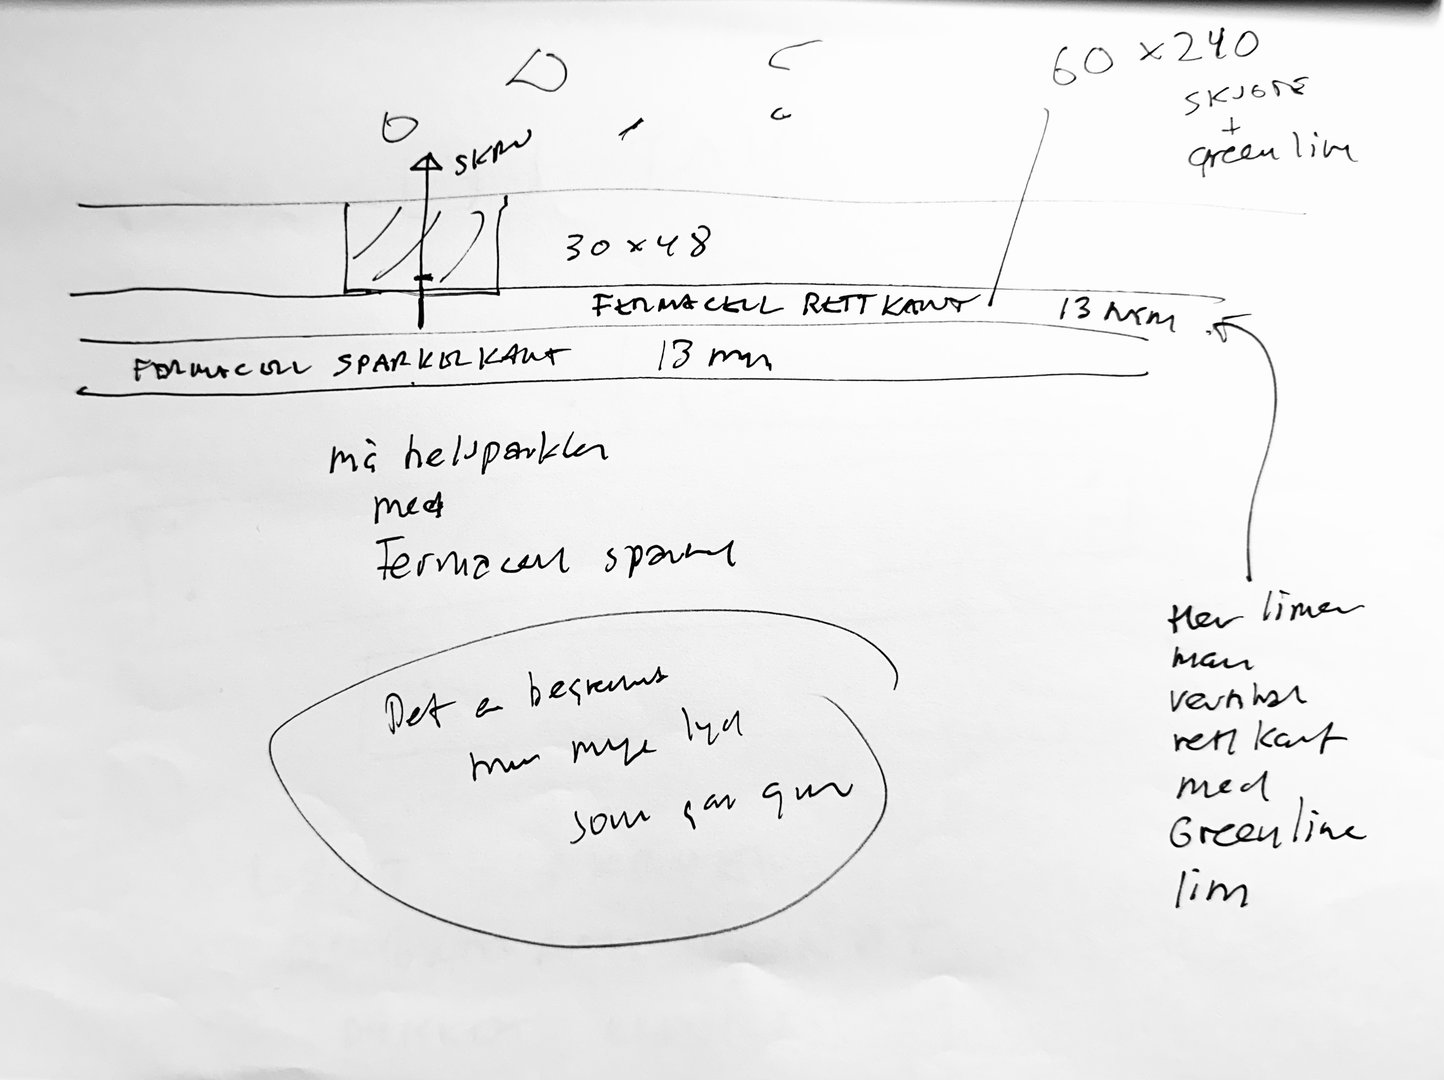 60 x 240
SKJØTE
+
green lim
SKRU
30 x 48
FERMACELL RETTKANT 13 mm
FERMACELL SPARKELKANT 13 mm
må helsparkles
med
Fermacell sparkel
Det er begrenset
hvor mye lyd
som går gjennom
Her limer
man
rettkant
med
Greenline
lim